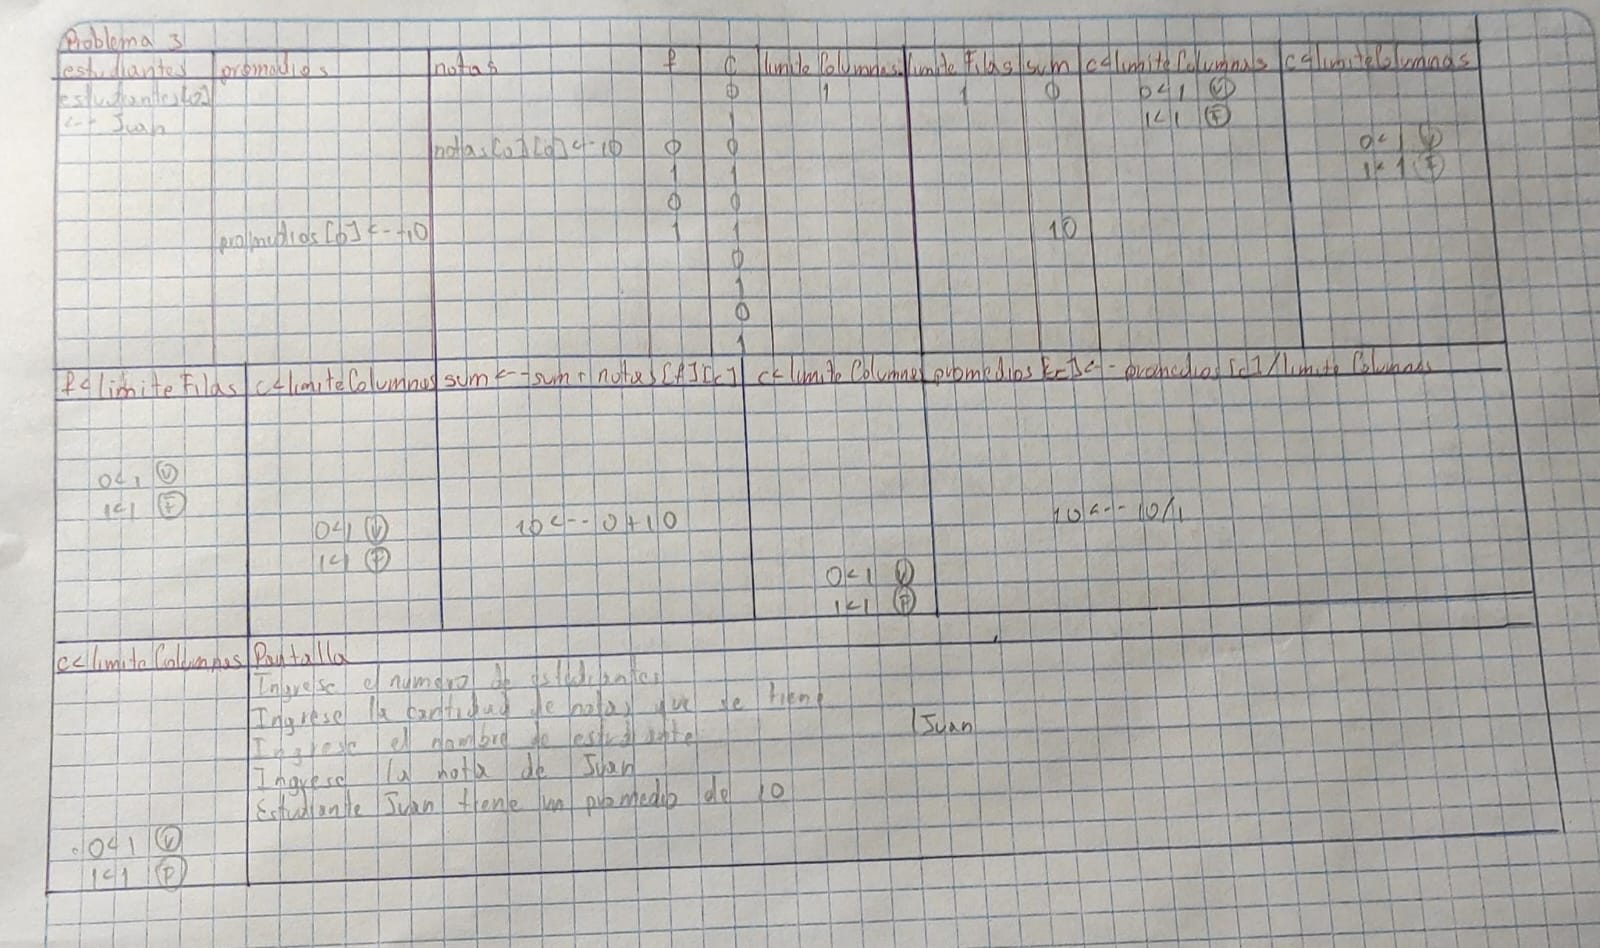 Problema 3
estudiantes promedios notas f c limite Columnas limite Filas sum c<limite Columnas c<limite Columnas
estudiantes[0] 0 1 1 0 0<1 (V)
<-- Juan 1 1<1 (F)
notas[0][0]<-10 0 0 0<1 (V)
1 1 1<1 (F)
0 0
promedios[0]<--10 1 1 10
0
1
0
1
f<limite Filas c<limite Columnas sum<--sum+notas[f][c] c<limite Columnas promedios[c]<--promedios[c]/limite Columnas
0<1 (V)
1<1 (F)
0<1 (V) 10<--0+10 10<--10/1
1<1 (F)
0<1 (V)
1<1 (F)
c<limite Columnas Pantalla
Ingrese el numero de estudiantes
Ingrese la cantidad de notas que se tiene
Ingrese el nombre de estudiante |Juan
Ingrese la nota de Juan
Estudiante Juan tiene un promedio de 10
0<1 (V)
1<1 (F)